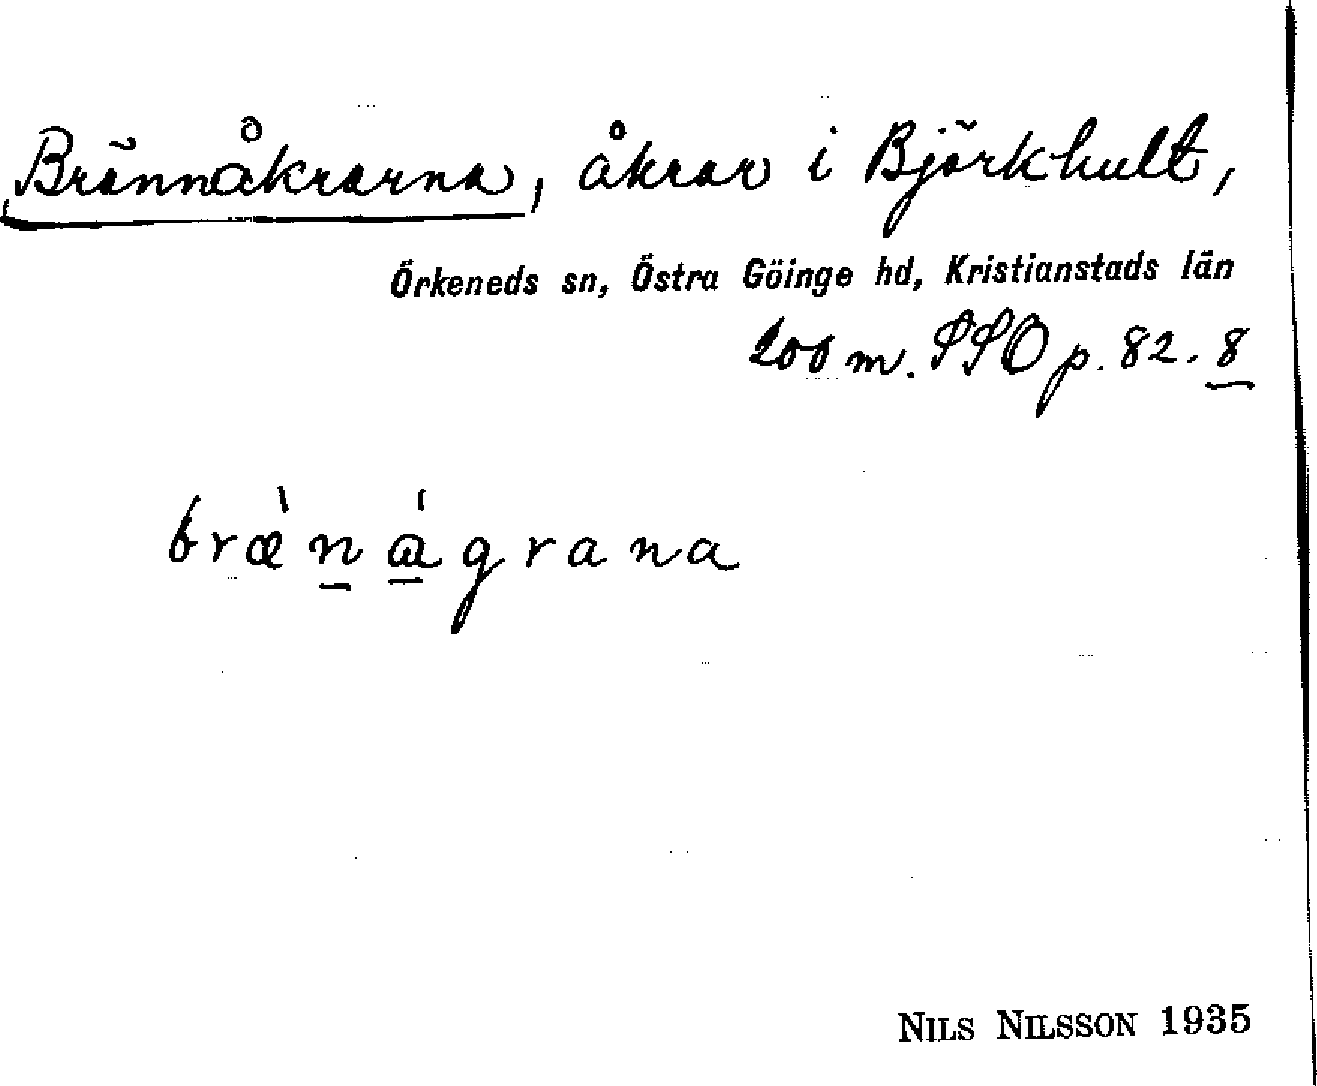 Brännåkrarna, åkrar i Björkhult,
Örkeneds sn, Östra Göinge hd, Kristianstads län
200 m. SSO p. 82. 8
bræ̀n̲ɑ̲́grana
NILS NILSSON 1935